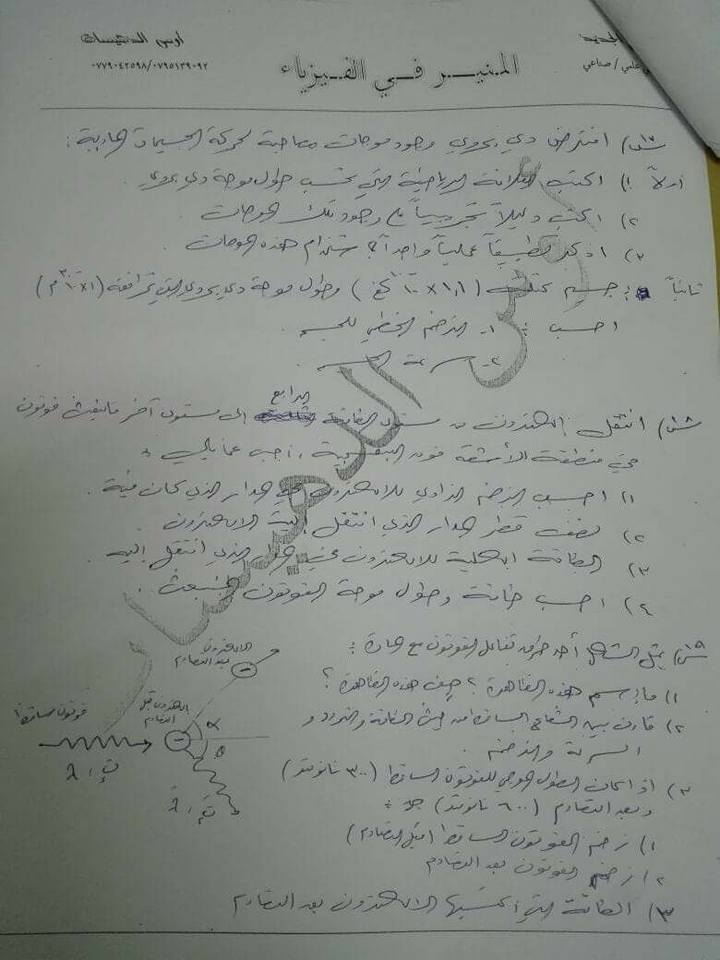 أوس الدغيمات
علمي / صناعي
المنير في الفيزياء
٠٧٧٩٠٤٢٥٩٨/٠٧٩٥١٣٩٠٩٢
افترض دي بروي وجود موجات مصاحبة لحركة الجسيمات المادية :
أولاً ١) اكتب العلاقة الرياضية التي تحسب طول موجة دي بروي
٢) اكتب دليلاً تجريبياً على وجود تلك الموجات
٣) اذكر تطبيقاً عملياً واحداً استخدام هذه الموجات
ثانياً : جسم كتلته كغ ) وطول موجة دي بروي التي ترافقه م )
احسب : ١- الزخم الخطي للجسم
٢- سرعة الجسم
الرابع
انتقل الكترون من مستوى الطاقة إلى مستوى آخر فانبعث فوتون
في منطقة الأشعة فوق البنفسجية ، أجب عما يلي :
١) احسب الزخم الزاوي للالكترون في المدار الذي كان فيه .
٢) نصف قطر المدار الذي انتقل إليه الالكترون
٣) الطاقة الكلية للالكترون في المدار الذي انتقل إليه
٤) احسب طاقة وطول موجة الفوتون المنبعث .
يمثل الشكل أحد طرق تفاعل الفوتون مع المادة :
الالكترون
بعد التصادم
١) ما اسم هذه الظاهرة ؟ صف هذه الظاهرة ؟
الكترون قبل
التصادم
فوتون ساقط
α
θ
λ
٢) قارن بين الشعاع الساقط من حيث الطاقة والتردد و
السرعة والزخم .
٣) اذا كان الطول الموجي للفوتون الساقط (٣٠٠ نانومتر)
وبعد التصادم (٦٠٠ نانومتر) جد :
١) زخم الفوتون الساقط (قبل التصادم)
٢) زخم الفوتون بعد التصادم
٣) الطاقة التي اكتسبها الالكترون بعد التصادم